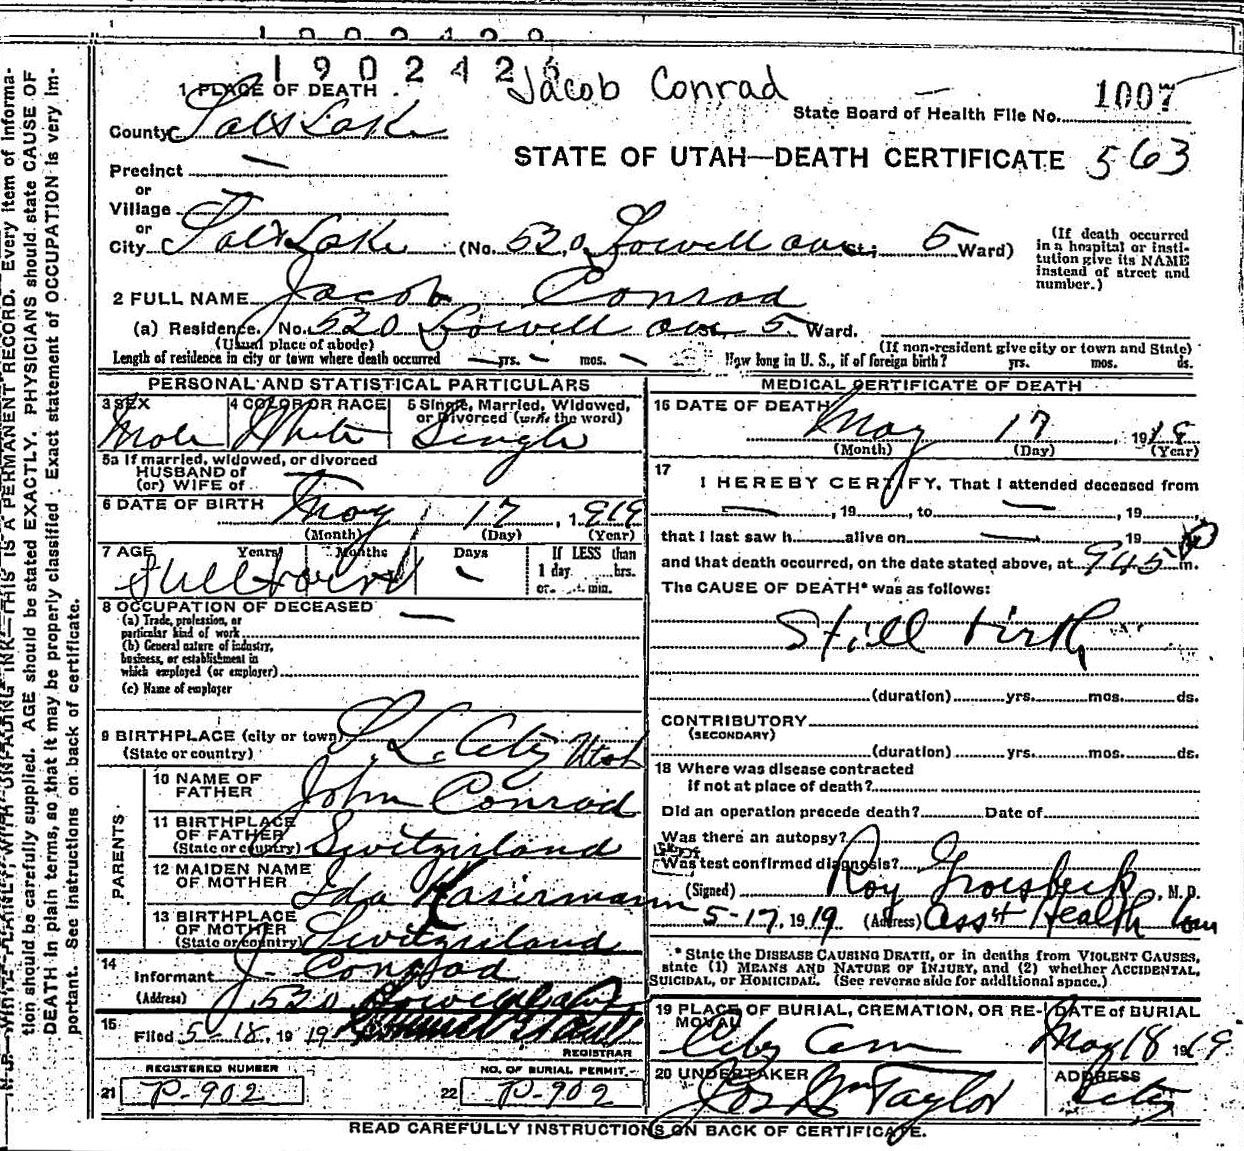 1902426
Jacob Conrad
1 PLACE OF DEATH
State Board of Health File No. 1007
County Salt Lake
STATE OF UTAH—DEATH CERTIFICATE 563
Precinct —
or
Village
or
City Salt Lake (No. 520, Lowell ave St; 5 Ward)
(If death occurred in a hospital or institution give its NAME instead of street and number.)
2 FULL NAME Jacob Conrad
(a) Residence. No. 520 Lowell ave St, 5 Ward.
(Usual place of abode)
(If non-resident give city or town and State)
Length of residence in city or town where death occurred — yrs. — mos. —
How long in U. S., if of foreign birth? yrs. mos. ds.
PERSONAL AND STATISTICAL PARTICULARS
3 SEX
Male
4 COLOR OR RACE
White
5 Single, Married, Widowed, or Divorced (write the word)
Single
5a If married, widowed, or divorced
HUSBAND of
(or) WIFE of —
6 DATE OF BIRTH May 17, 1919
(Month) (Day) (Year)
7 AGE Years Months Days
Stillborn —
If LESS than
1 day ......hrs.
or......min.
8 OCCUPATION OF DECEASED —
(a) Trade, profession, or
particular kind of work
(b) General nature of industry,
business, or establishment in
which employed (or employer)
(c) Name of employer
9 BIRTHPLACE (city or town) S. L. City Utah
(State or country)
PARENTS
10 NAME OF FATHER John Conrad
11 BIRTHPLACE OF FATHER (State or country) Switzerland
12 MAIDEN NAME OF MOTHER Ida Kasermann
13 BIRTHPLACE OF MOTHER (State or country) Switzerland
14
Informant J. Conrad
(Address) 520 Lowell Ave
15
Filed 5-18, 1919
REGISTRAR
REGISTERED NUMBER
21 P-902
NO. OF BURIAL PERMIT
22 P-902
MEDICAL CERTIFICATE OF DEATH
16 DATE OF DEATH
May 17, 1918
(Month) (Day) (Year)
17
I HEREBY CERTIFY, That I attended deceased from
—, 19 , to —, 19 ,
that I last saw h......alive on — 19
and that death occurred, on the date stated above, at 945 m.
The CAUSE OF DEATH* was as follows:
Still birth
(duration) yrs. mos. ds.
CONTRIBUTORY
(SECONDARY)
(duration) yrs. mos. ds.
18 Where was disease contracted
if not at place of death?
Did an operation precede death? Date of
Was there an autopsy?
Was test confirmed diagnosis?
(Signed) Roy Groesbeck, M. D.
5-17, 1919 (Address) Ass't Health Com
* State the DISEASE CAUSING DEATH, or in deaths from VIOLENT CAUSES,
state (1) MEANS AND NATURE OF INJURY, and (2) whether ACCIDENTAL,
SUICIDAL, or HOMICIDAL. (See reverse side for additional space.)
19 PLACE OF BURIAL, CREMATION, OR REMOVAL
City Cem
DATE of BURIAL
May 18 1919
20 UNDERTAKER
Jos Wm Taylor
ADDRESS
City
READ CAREFULLY INSTRUCTIONS ON BACK OF CERTIFICATE.
N. B.—WRITE PLAINLY WITH UNFADING INK—THIS IS A PERMANENT RECORD. Every item of information should be carefully supplied. AGE should be stated EXACTLY. PHYSICIANS should state CAUSE OF DEATH in plain terms, so that it may be properly classified. Exact statement of OCCUPATION is very important. See instructions on back of certificate.